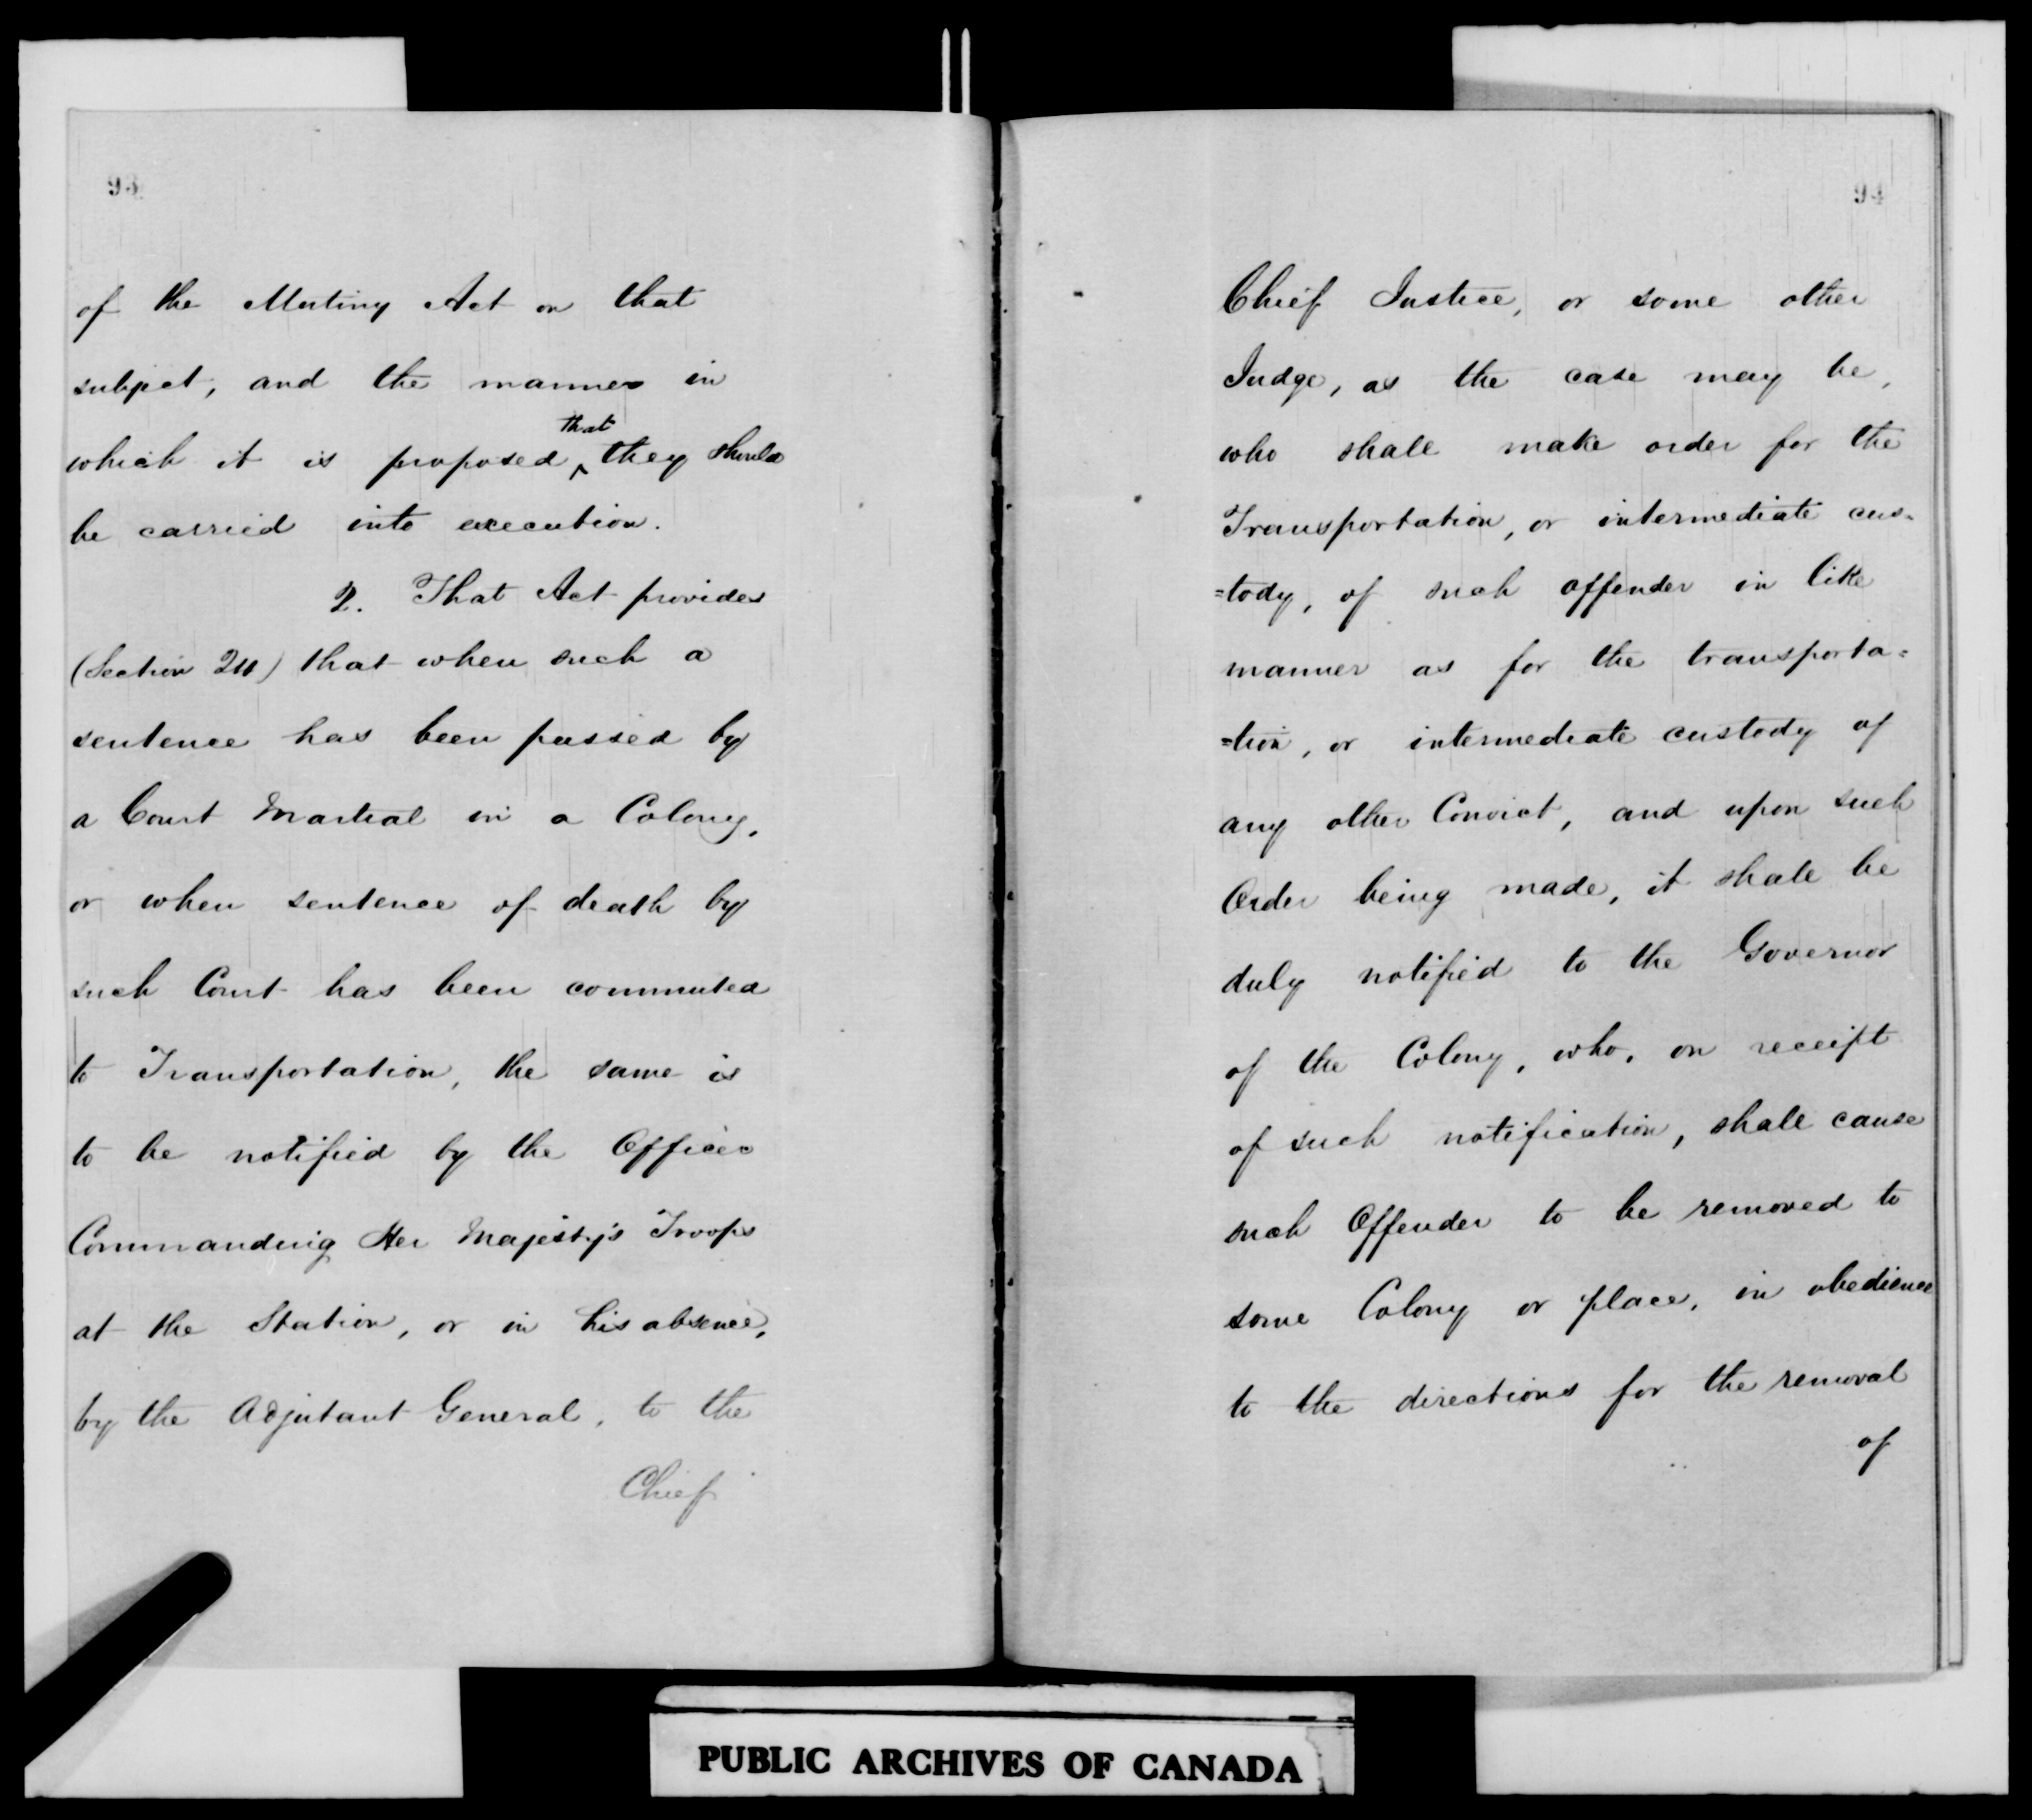 93
of the Mutiny Act on that
subject, and the manner in
which it is proposed ^that they should
be carried into execution.
2. That Act provides
(Section 211) that when such a
sentence has been passed by
a Court Martial in a Colony,
or when sentence of death by
such Court has been commuted
to Transportation, the same is
to be notified by the Officer
Commanding Her Majesty's Troops
at the Station, or in his absence,
by the Adjutant General, to the
Chief
94
Chief Justice, or some other
Judge, as the case may be,
who shall make order for the
Transportation, or intermediate cus-
=tody, of such offender in like
manner as for the transporta=
=tion, or intermediate custody of
any other Convict, and upon such
Order being made, it shall be
duly notified to the Governor
of the Colony, who, on receipt
of such notification, shall cause
such Offender to be removed to
some Colony or place, in obedience
to the directions for the removal
of
PUBLIC ARCHIVES OF CANADA